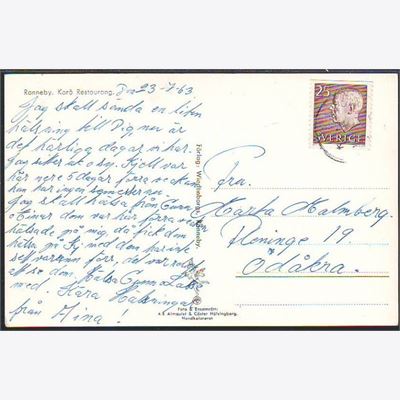 Ronneby. Karö Restaurang. Da 23-7-63
Jag skall sända en liten
hälsning till Dig, nu är
det härliga dagar vi har.
Jag sitter ut o sy. Kjell var
här nere 5 dagar förra veckan
hen har ingen semester nu
Jag skall hälsa från Gunn
o Einar dom var här förra veckan
hälsade på mig, då fick dom
gå med den
själv varsin förr, det var
att se dom. Hälsa Gunn o
med. Kära Hälsningar
från Mina!
Förlag: Wiegheborgs, Ronneby.
Foto & Ensamrätt:
A.B. Almquist & Cöster Hälsingborg.
Handkolorerat
25
SVERIGE
Fru.
Marta Malmberg.
Reninge 19.
Ödåkra.